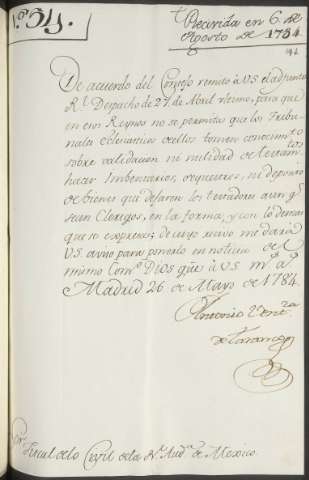 N.º 54.
Recivida en 6. de
Agosto de 1784.
De acuerdo del Consejo remito à VS. el adjunto
Rl. Despacho de 27 de Abril ultimo, para que
en esos Reynos no se permita que los Tribu-
nales Eclesiasticos de ellos tomen conocimto.
sobre validacion ni nulidad de testamtos.
hacer Imbentarios, sequestros, ni deposito
de bienes qe. dejaron los testadores aun qe.
sean Clerigos, en la forma, y con lo demas
que se expresa; de cuyo recivo me dará
VS. aviso para ponerlo en noticia del
mismo Conso. Dios gûe à VS. ms. as.
Madrid 26 de Mayo de 1784.
Antonio Ventra.
de Taranco
Sor. Fiscal de lo Civil de la Rl. Auda. de Mexico.